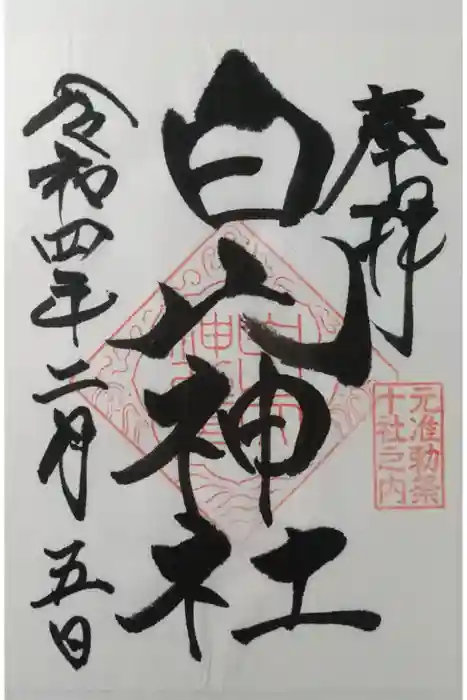 奉拝
白山神社
元准勅祭
十社之内
令和四年二月五日